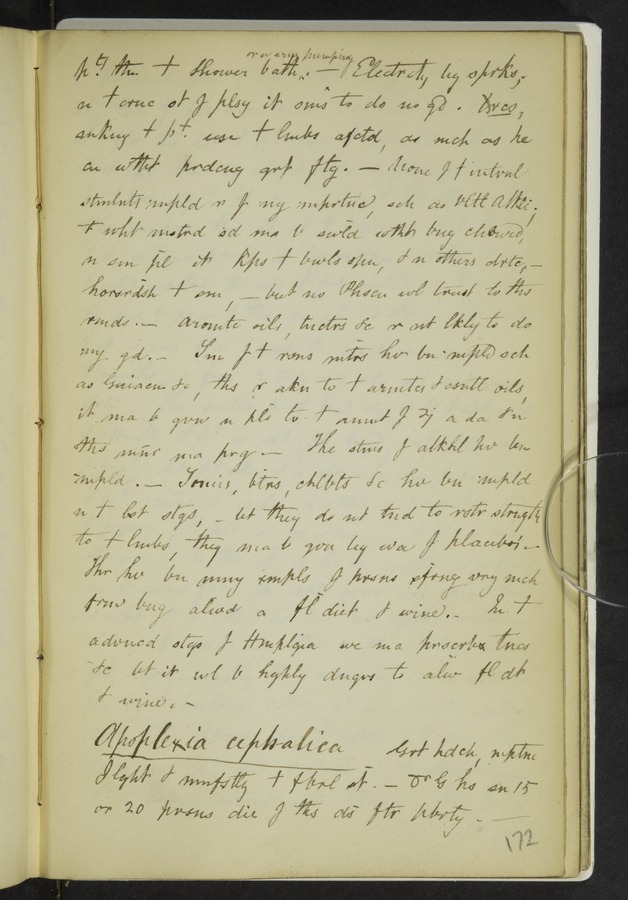 or warm pumping
pt. thn + shower bath. — Electrcty by sprks,
n t crnc st f plsy it sms to do no gd. Xrcs,
mkng + pt. use + lmbs afctd, as mch as he
cn wtht prdcng grt ftg. — None f t intrnl
stmlnts mpld r f ny mprtnc, sch as vltl Alkli,
+ wht mstrd sd ma b swld wtht bng chwd,
n sm pl it kps + bwls opn, & n others drtc, —
horsrdsh + sm, — but no Phscn wl trust to ths
rmds. — aromtc oils, tnctrs &c r nt lkly to do
ny gd. — Sm f t rsns ntrs hv bn mpld sch
as Guiacm &c, ths r akn to + armtcs & esntl oils,
it ma b gvn n pls to + amnt f ʒj a da & n
ths mnr ma prg — The stms f alkhl hv bn
mpld. — Tonics, btrs, chlbts &c hv bn mpld
n t lst stgs, — bt they do nt tnd to rstr strngth
to + lmbs, they ma b gvn by wa f placebos —
Thr hv bn mny xmpls f prsns strng vry mch
frm bng alwd a fl diet & wine. — In +
advncd stgs f Hmplgia we ma prscrb tncs
&c bt it wl b highly dngrs to alw fl dt
& wine. —
Apoplexia cephalica Grt hdch, mptnc
f lght & mnfstly + fbrl st. — Dr G hs sn 15
or 20 prsns die f ths ds ftr pbrty. —
172